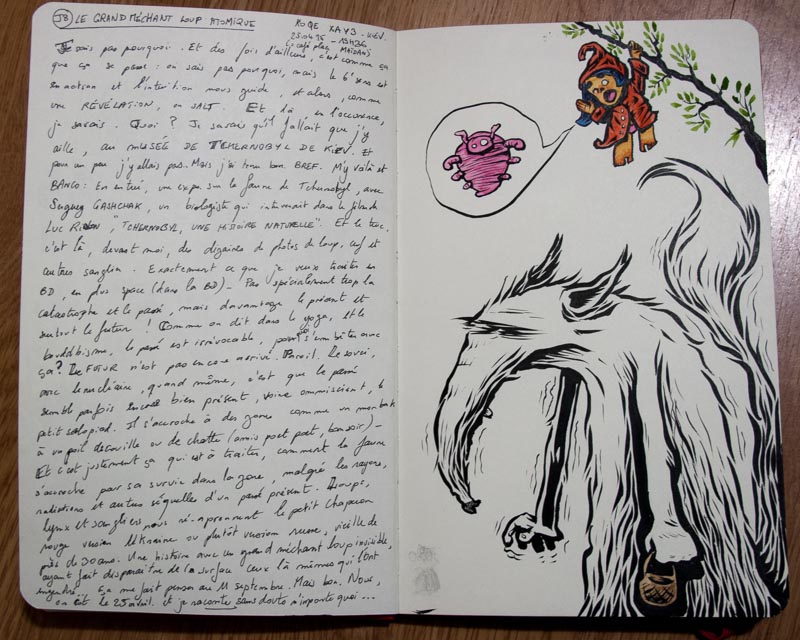 J8) LE GRAND MÉCHANT LOUP ATOMIQUE
KIEV.
25.04.15 - 15H36
Je sais pas pourquoi. Et des fois d'ailleurs, c'est comme ça
que ça se passe : on sait pas pourquoi, mais le 6e sens est
en action et l'intuition nous guide, et alors, comme
une RÉVÉLATION, on SAIT. Et là en l'occurence,
je savais. Quoi ? Je savais qu'il fallait que j'y
aille, au MUSÉE DE TCHERNOBYL DE KIEV. Et
pour un peu j'y allais pas. Mais j'ai tenu bon. BREF. M'y voilà et
BANCO : En entrée, un expo sur la faune de Tchernobyl, avec
GASHCHAK, un biologiste qui intervenait dans le film de
LUC "TCHERNOBYL, UNE HISTOIRE NATURELLE". Et le truc,
c'est là, devant moi, des dizaines de photos de loup, cerf et
autres sanglier. Exactement ce que je veux traiter en
BD, en plus space (dans la BD) - Pas spécialement trop la
catastrophe et le passé, mais davantage le présent et
surtout le futur ! Comme on dit dans le yoga, et le
bouddhisme, le passé est irrévocable, pourquoi s'embêter avec
ça ? Le FUTUR n'est pas encore arrivé. Pareil. Le souci,
avec le nucléaire, quand même, c'est que le passé
semble parfois encore bien présent, voire omniscient, le
petit salopiad. Il s'accroche à des zones comme un morbak
à un poil de couille ou de chatte (amis poet poet, bonsoir) -
Et c'est justement ça qui est à traiter, comment la faune
s'accroche pour sa survie dans la zone, malgré les rayons,
radiations et autres séquelles d'un passé présent. Loups,
lynx et sangliers nous ré-apprennent le petit chaperon
rouge version Ukraine ou plutôt version russe, vieille de
près de 30 ans. Une histoire avec un grand méchant loup invisible,
ayant fait disparaître de la surface ceux là mêmes qui l'ont
engendré.. ça me fait penser au 11 septembre. Mais bon. Nous,
on est le 25 avril. et je raconte sans doute n'importe quoi...